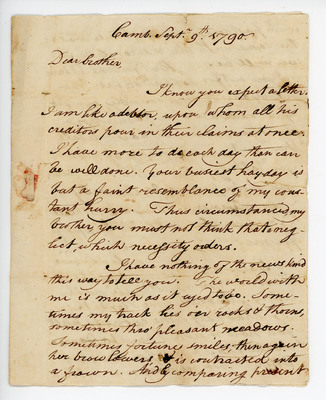 Camb. Sept.r 9th. 1790.
Dear brother,
I know you expect a letter.
I am like a debtor, upon whom all his
creditors pour in their claims at once.
I have more to do each day than can
be well done. Your busiest hayday is
but a faint resemblance of my cons-
tant hurry. Thus circumstanced, my
brother, you must not think that neg-
lect, which necessity orders.
I have nothing of the news kind
this way to tell you. The world with
me is much as it used to be. Some-
times my track lies o'er rocks & thorns,
sometimes thro' pleasant meadows.
Sometimes fortune smiles, then again
her brow lowers, & is contracted into
a frown. And by comparing present